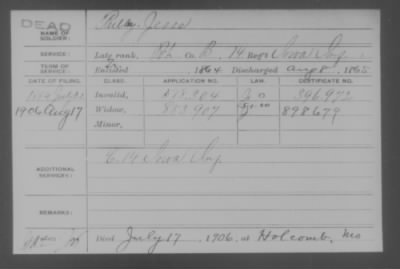 DEAD
NAME OF SOLDIER: Jesse
SERVICE: Late rank, Pvt Co. 14 Reg't Iowa Inf.
TERM OF SERVICE: Enlisted 1864 Discharged Aug 8, 1865
DATE OF FILING. CLASS. APPLICATION NO. LAW. CERTIFICATE NO.
Invalid, 396.972
1906 Aug 17 Widow, 853.907 898679
Minor,
ADDITIONAL SERVICES: 14 Iowa Inf
REMARKS:
Died July 17, 1906, at Holcomb, Mo